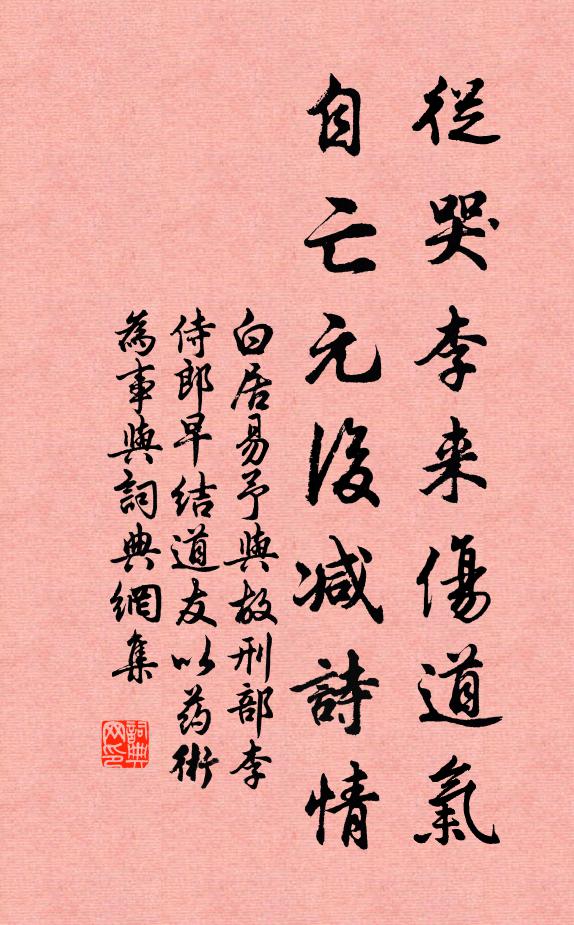 從哭李来傷道氣
自亡元後減詩情
白居易予與故刑部李
侍郎早结道友以药術
為事與詞典網集
詞典
网印